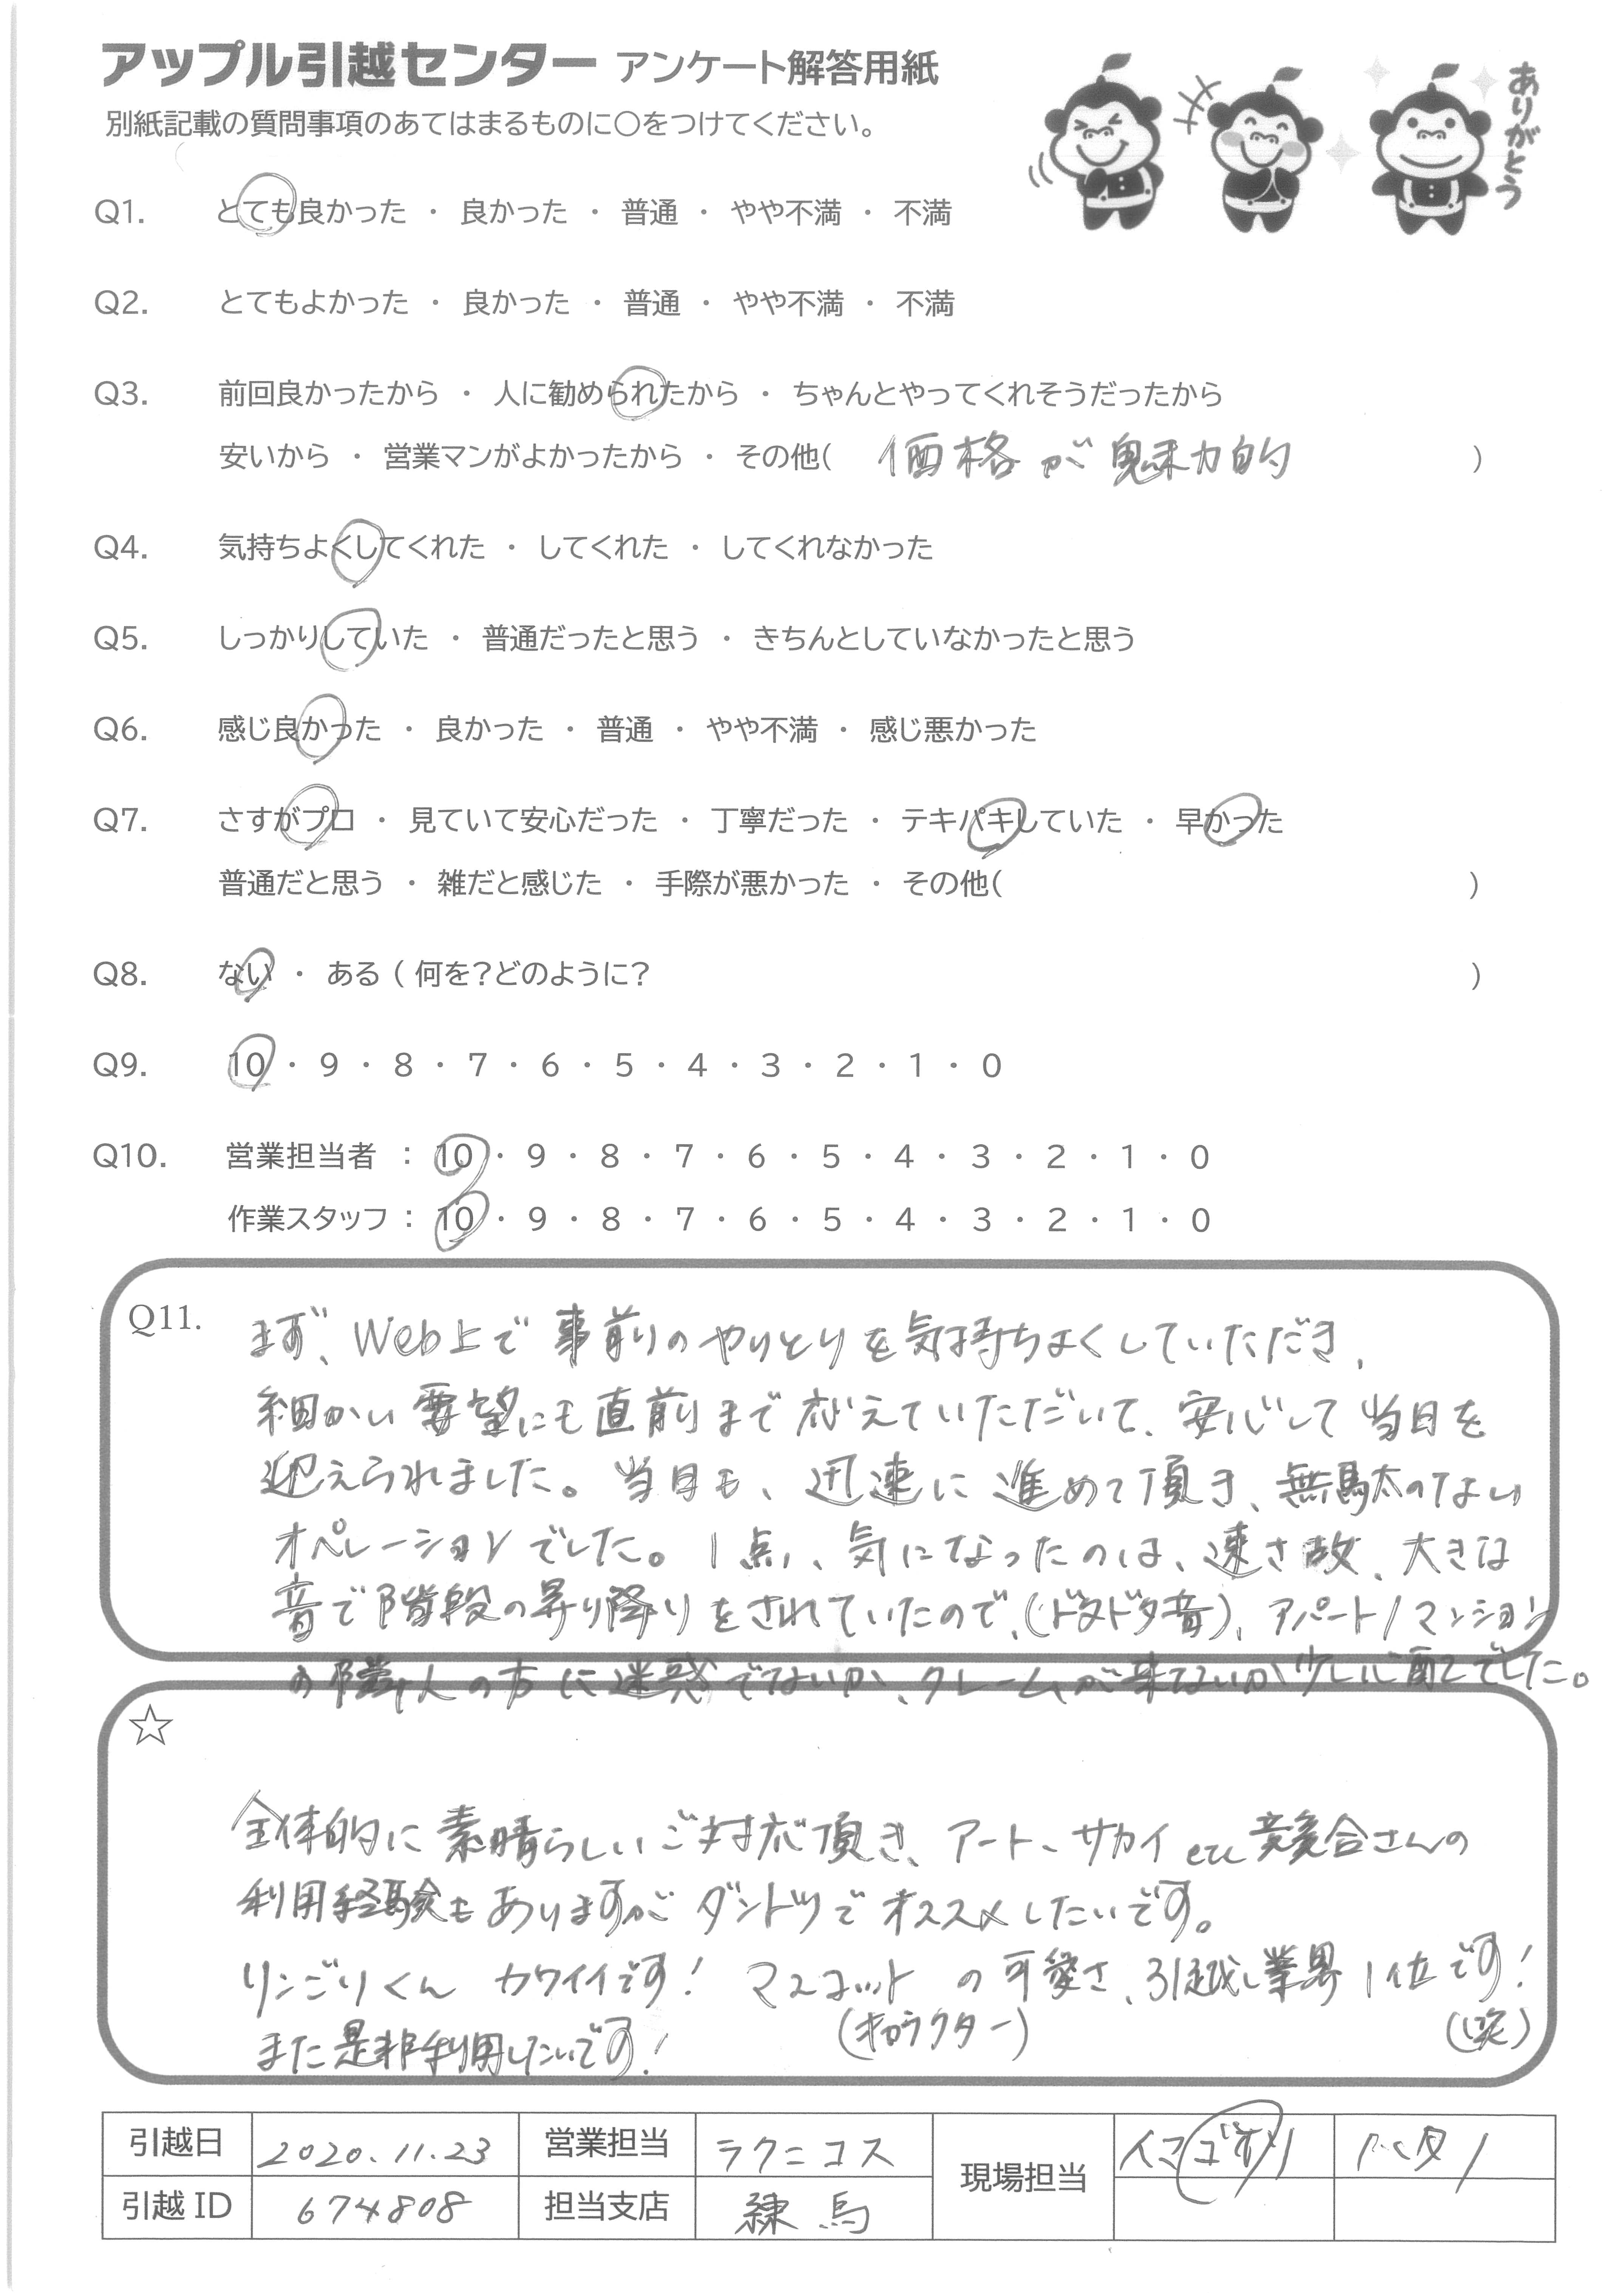 アップル引越センター アンケート解答用紙
別紙記載の質問事項のあてはまるものに○をつけてください。
ありがとう
Q1. とても良かった ・ 良かった ・ 普通 ・ やや不満 ・ 不満
Q2. とてもよかった ・ 良かった ・ 普通 ・ やや不満 ・ 不満
Q3. 前回良かったから ・ 人に勧められたから ・ ちゃんとやってくれそうだったから
安いから ・ 営業マンがよかったから ・ その他( 価格が魅力的 )
Q4. 気持ちよくしてくれた ・ してくれた ・ してくれなかった
Q5. しっかりしていた ・ 普通だったと思う ・ きちんとしていなかったと思う
Q6. 感じ良かった ・ 良かった ・ 普通 ・ やや不満 ・ 感じ悪かった
Q7. さすがプロ ・ 見ていて安心だった ・ 丁寧だった ・ テキパキしていた ・ 早かった
普通だと思う ・ 雑だと感じた ・ 手際が悪かった ・ その他( )
Q8. ない ・ ある ( 何を?どのように? )
Q9. 10 ・ 9 ・ 8 ・ 7 ・ 6 ・ 5 ・ 4 ・ 3 ・ 2 ・ 1 ・ 0
Q10. 営業担当者 : 10 ・ 9 ・ 8 ・ 7 ・ 6 ・ 5 ・ 4 ・ 3 ・ 2 ・ 1 ・ 0
作業スタッフ : 10 ・ 9 ・ 8 ・ 7 ・ 6 ・ 5 ・ 4 ・ 3 ・ 2 ・ 1 ・ 0
Q11. まず、Web上で事前のやりとりを気持ちよくしていただき、
細かい要望にも直前まで応えていただいて、安心して当日を
迎えられました。当日も、迅速に進めて頂き、無駄のない
オペレーションでした。1点、気になったのは、速さ故、大きな
音で階段の昇り降りをされていたので、(ドタドタ音)、アパート/マンション
の隣人の方に迷惑でないか、クレームが来ないか少し心配でした。
☆
全体的に素晴らしいご対応頂き、アート、サカイ etc 競合さんの
利用経験もありますがダントツでオススメしたいです。
りんごりくん カワイイです! マスコットの可愛さ、引越し業界1位です!
(キャラクター) (笑)
また是非利用したいです!
引越日 2020.11.23 営業担当 ラクニコス 現場担当
引越ID 674808 担当支店 練馬